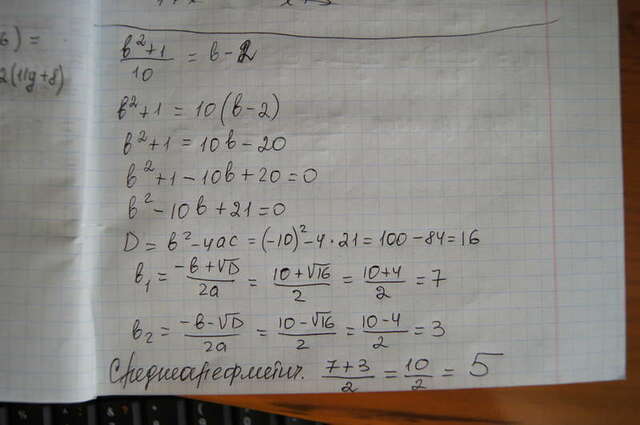 6) =
2(11y+8)
(в²+1)/10 = в-2
в²+1 = 10(в-2)
в²+1 = 10в-20
в²+1-10в+20=0
в²-10в+21=0
D = в²-4ac = (-10)²-4·21=100-84=16
в₁ = (-в+√D)/2a = (10+√16)/2 = (10+4)/2 = 7
в₂ = (-в-√D)/2a = (10-√16)/2 = (10-4)/2 = 3
Среднеарефметич. (7+3)/2 = 10/2 = 5